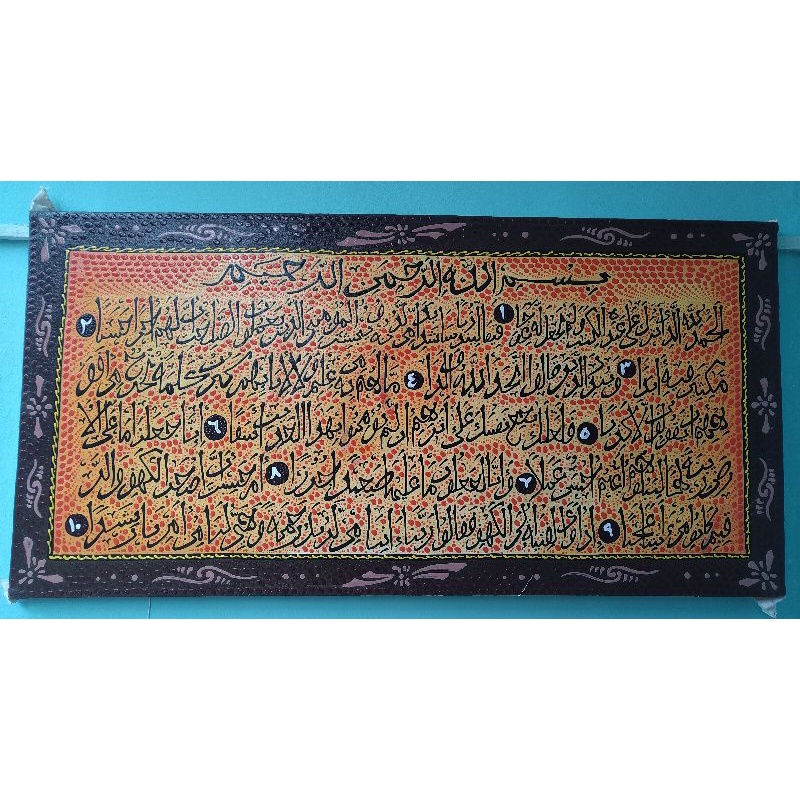 بسم الله الرحمن الرحيم
الحمد لله الذي انزل على عبده الكتب ولم يجعل له عوجا ١ قيما لينذر باسا شديدا من لدنه ويبشر المؤمنين الذين يعملون الصلحت ان لهم اجرا حسنا ٢
مكثين فيه ابدا ٣ وينذر الذين قالوا اتخذ الله ولدا ٤ ما لهم به من علم ولا لابائهم كبرت كلمة تخرج من افو
اههم ان يقولون الا كذبا ٥ فلعلك بخع نفسك على اثرهم ان لم يؤمنوا بهذا الحديث اسفا ٦ انا جعلنا ما على الا
رض زينة لها لنبلوهم ايهم احسن عملا ٧ وانا لجعلون ما عليها صعيدا جرزا ٨ ام حسبت ان اصحب الكهف والر
قيم كانوا من ايتنا عجبا ٩ اذ اوى الفتية الى الكهف فقالوا ربنا اتنا من لدنك رحمة وهيئ لنا من امرنا رشدا ١٠